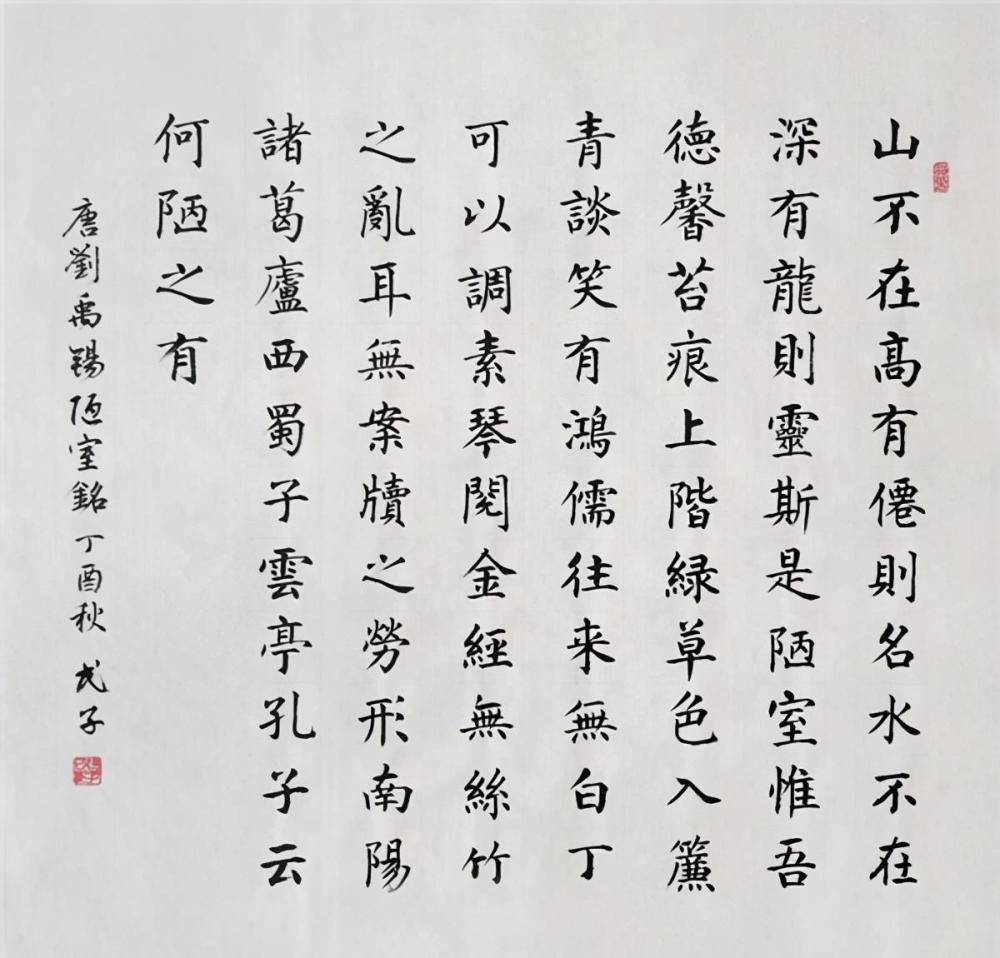 山不在高有僊則名水不在
深有龍則靈斯是陋室惟吾
德馨苔痕上階緑草色入簾
青談笑有鴻儒往来無白丁
可以調素琴閱金經無絲竹
之亂耳無案牘之勞形南陽
諸葛廬西蜀子雲亭孔子云
何陋之有
唐劉禹錫陋室銘丁酉秋 子